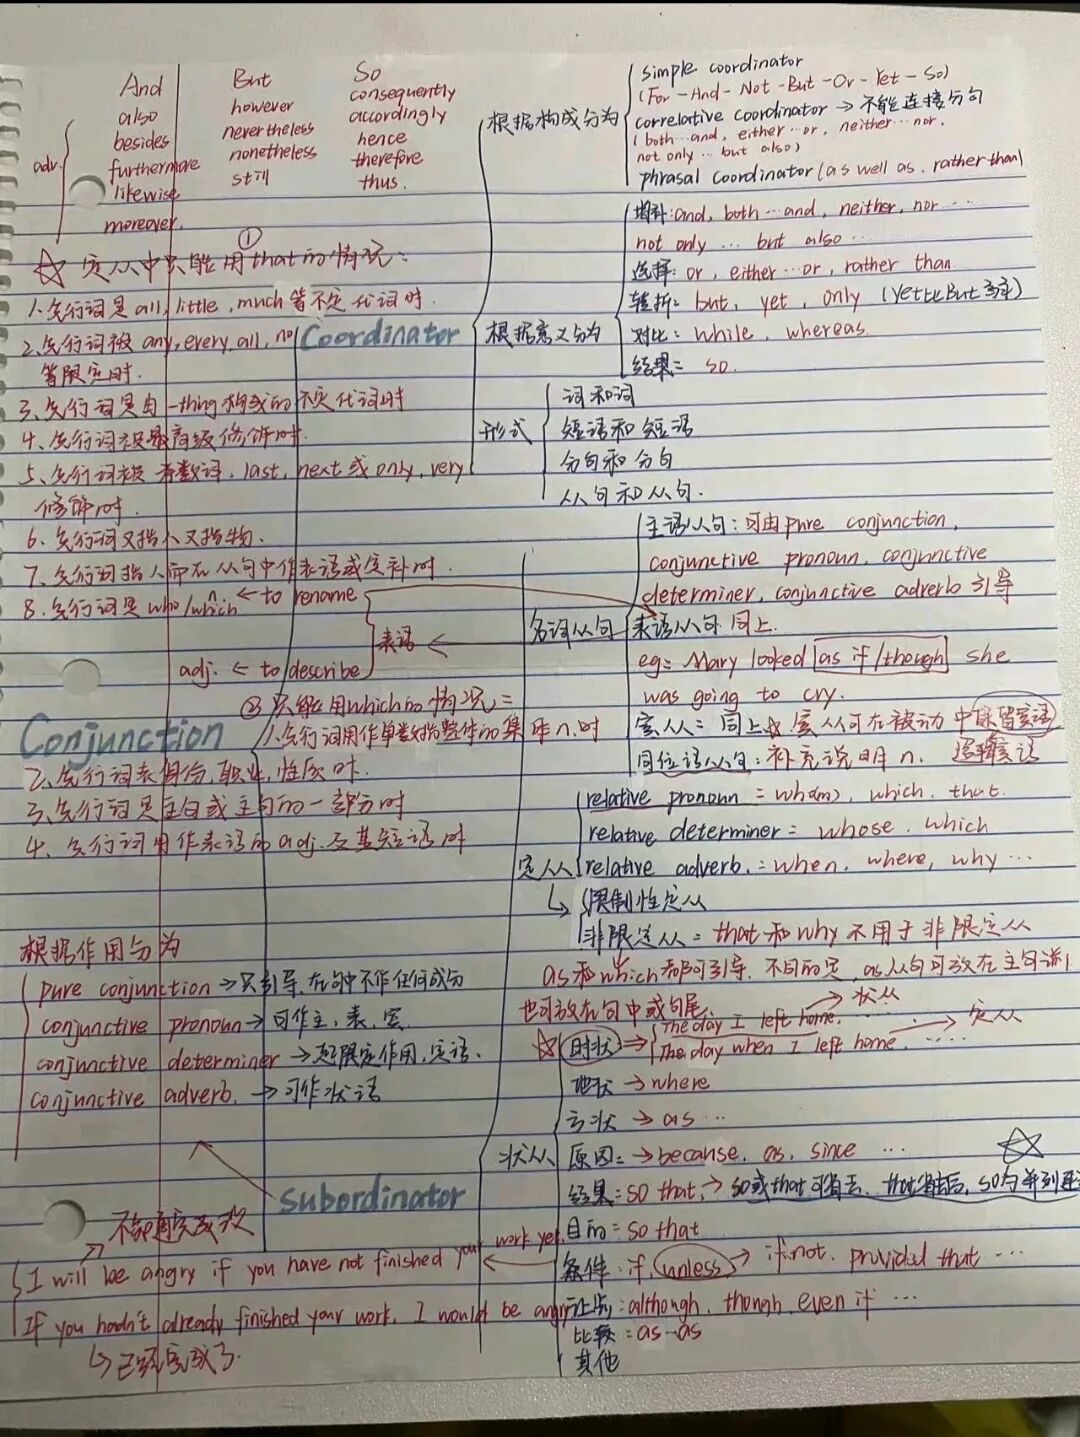 And
also
besides
furthermore
likewise
moreover.
adv.
But
however
nevertheless
nonetheless
still
So
consequently
accordingly
hence
therefore
thus.
①
☆ 定从中只能用that的情况:
1.先行词是all, little, much等不定代词时.
2.先行词被any, every, all, no
等限定时.
3、先行词是由-thing构成的不定代词时
4、先行词被最高级修饰时.
5、先行词被序数词、last, next或only, very
修饰时.
6、先行词又指人又指物.
7、先行词指人而在从句中作表语或宾补时.
8、先行词是who/which
n. ← to rename
adj. ← to describe
表语
②只能用which的情况:
1.先行词用作单数指整体的集体n.时
2、先行词表身份,职业,性质时.
3、先行词是主句或主句的一部分时
4、先行词用作表语的adj.及其短语时
Conjunction
根据作用分为
pure conjunction → 只引导,在句中不作任何成分
conjunctive pronoun → 可作主,表,宾
conjunctive determiner → 起限定作用,定语.
conjunctive adverb. → 可作状语
Coordinator
根据构成分为
simple coordinator
(For-And-Not-But-Or-Yet-So)
correlative coordinator → 不能连接分句
(both…and, either…or, neither…nor.
not only…but also)
phrasal coordinator (as well as, rather than)
根据意义分为
增补: and, both…and, neither, nor…
not only… but also…
选择: or, either…or, rather than
转折: but, yet, only (yet比But高率)
对比: while, whereas.
结果: so.
形式
词和词
短语和短语
分句和分句
从句和从句.
subordinator
名词从句
主语从句: 可由pure conjunction,
conjunctive pronoun, conjunctive
determiner, conjunctive adverb引导
表语从句 同上.
eg: Mary looked as if/though she
was going to cry.
宾从: 同上 宾从可在被动中保留宾语
同位语从句: 补充说明n.
逻辑宾语
定从
relative pronoun = who(m), which, that.
relative determiner = whose, which
relative adverb. = when, where, why…
↳ 限制性定从
非限定从 = that和why不用于非限定从
as和which都可引导,不同的是,as从句可放在主句前
也可放在句中或句尾.
状从
☆ 时状 ⇒
The day I left home, → 状从
The day when I left home, …… → 定从
地状 → where
方状 → as …
原因: → because, as, since … ☆
结果: so that, → so或that可省去、that省去后,so为并列连
目的: so that
条件: if, unless → if not, provided that …
让步: although, though, even if …
比较: as-as
其他
不知道完成否
I will be angry if you have not finished your work yet.
If you hadn't already finished your work, I would be angry
↳ 已经完成了.